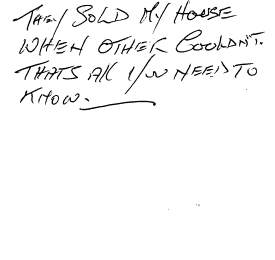 THEY SOLD MY HOUSE
WHEN OTHER COULDN'T.
THATS All YOU NEED TO
KNOW.